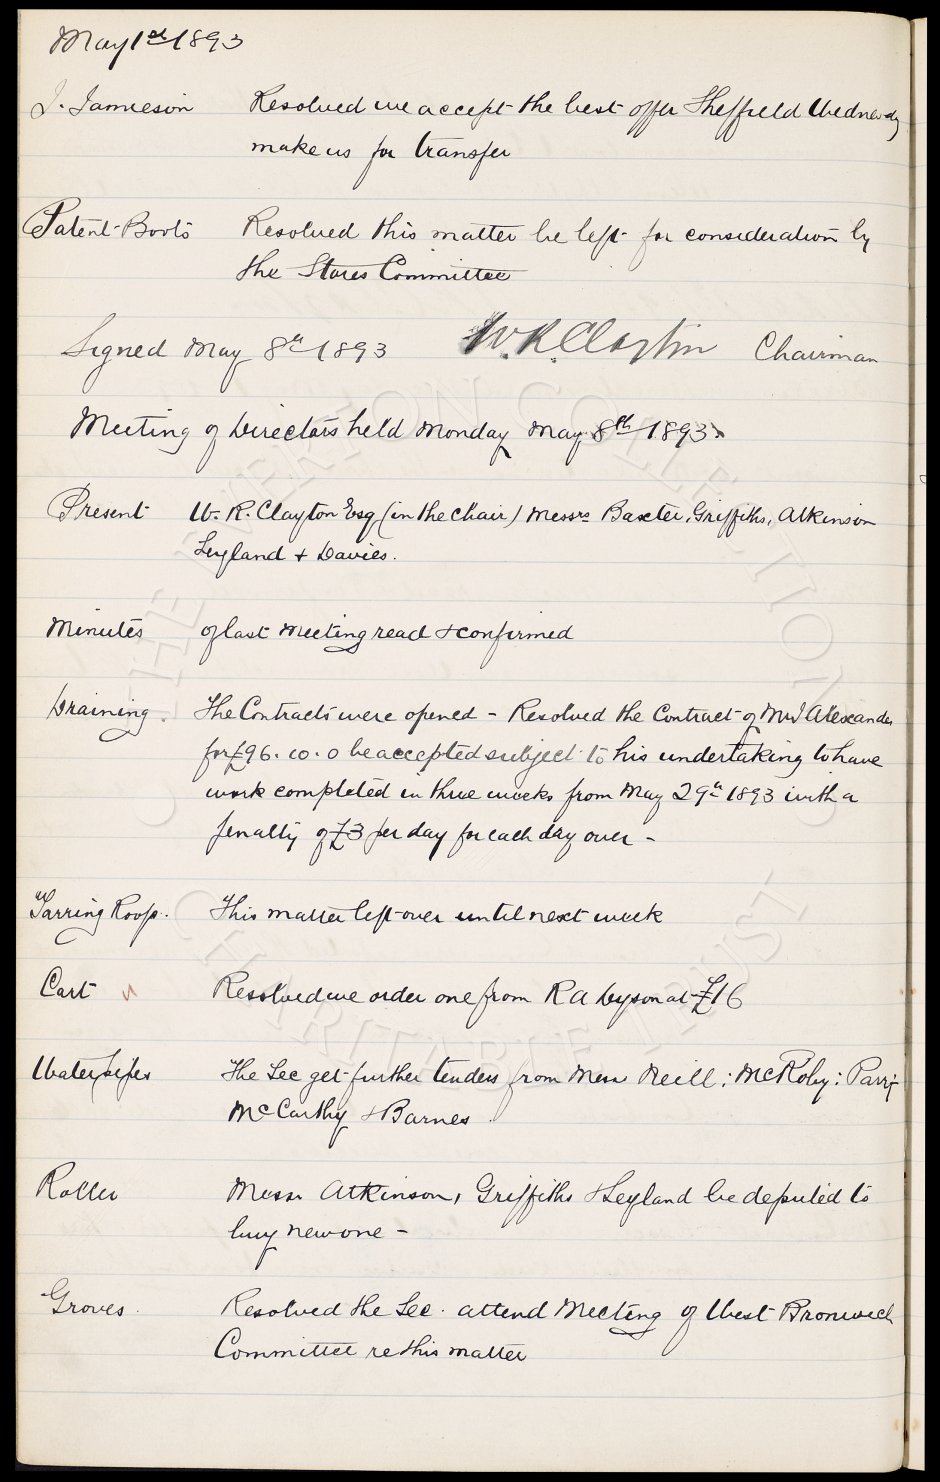 May 1st 1893
J. Jamieson Resolved we accept the best offer Sheffield Wednesdy
make us for transfer
Patent Boots Resolved this matter be left for consideration by
the Stores Committee
Signed May 8th 1893 W. R. Clayton Chairman
Meeting of Directors held Monday May 8th 1893
Present W. R. Clayton Esq (in the Chair) Messrs Baxter, Griffiths, Atkinson
Leyland & Davies.
Minutes of last Meeting read & confirmed
Draining. The Contracts were opened - Resolved the Contract of Mr J Alexander
for £96. 10. 0 be accepted subject to his undertaking to have
work completed in three weeks from May 29th 1893 with a
penalty of £3 per day for each day over -
Tarring Roofs. This matter left over until next week
Cart Resolved we order one from R A Dyson at £16
Water pipes The Sec get further tenders from Mess Neill; McRoby; Parry
McCarthy & Barnes
Roller Messrs Atkinson, Griffiths & Leyland be deputed to
buy new one -
Groves. Resolved the Sec. attend Meeting of West Bromwich
Committee re this matter
THE EVERTON COLLECTION
CHARITABLE TRUST